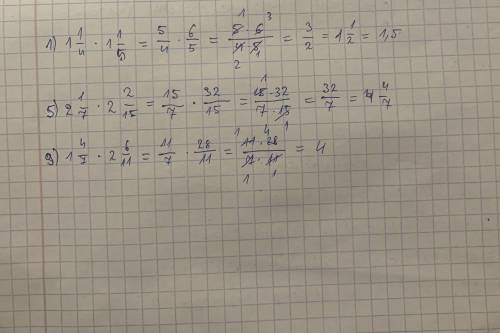 1) 1 1/4 · 1 1/5 = 5/4 · 6/5 = 5 · 6/4 · 5 = 3/2 = 1 1/2 = 1,5
5) 2 1/7 · 2 2/15 = 15/7 · 32/15 = 15 · 32/7 · 15 = 32/7 = 4 4/7
9) 1 4/7 · 2 6/11 = 11/7 · 28/11 = 11 · 28/7 · 11 = 4